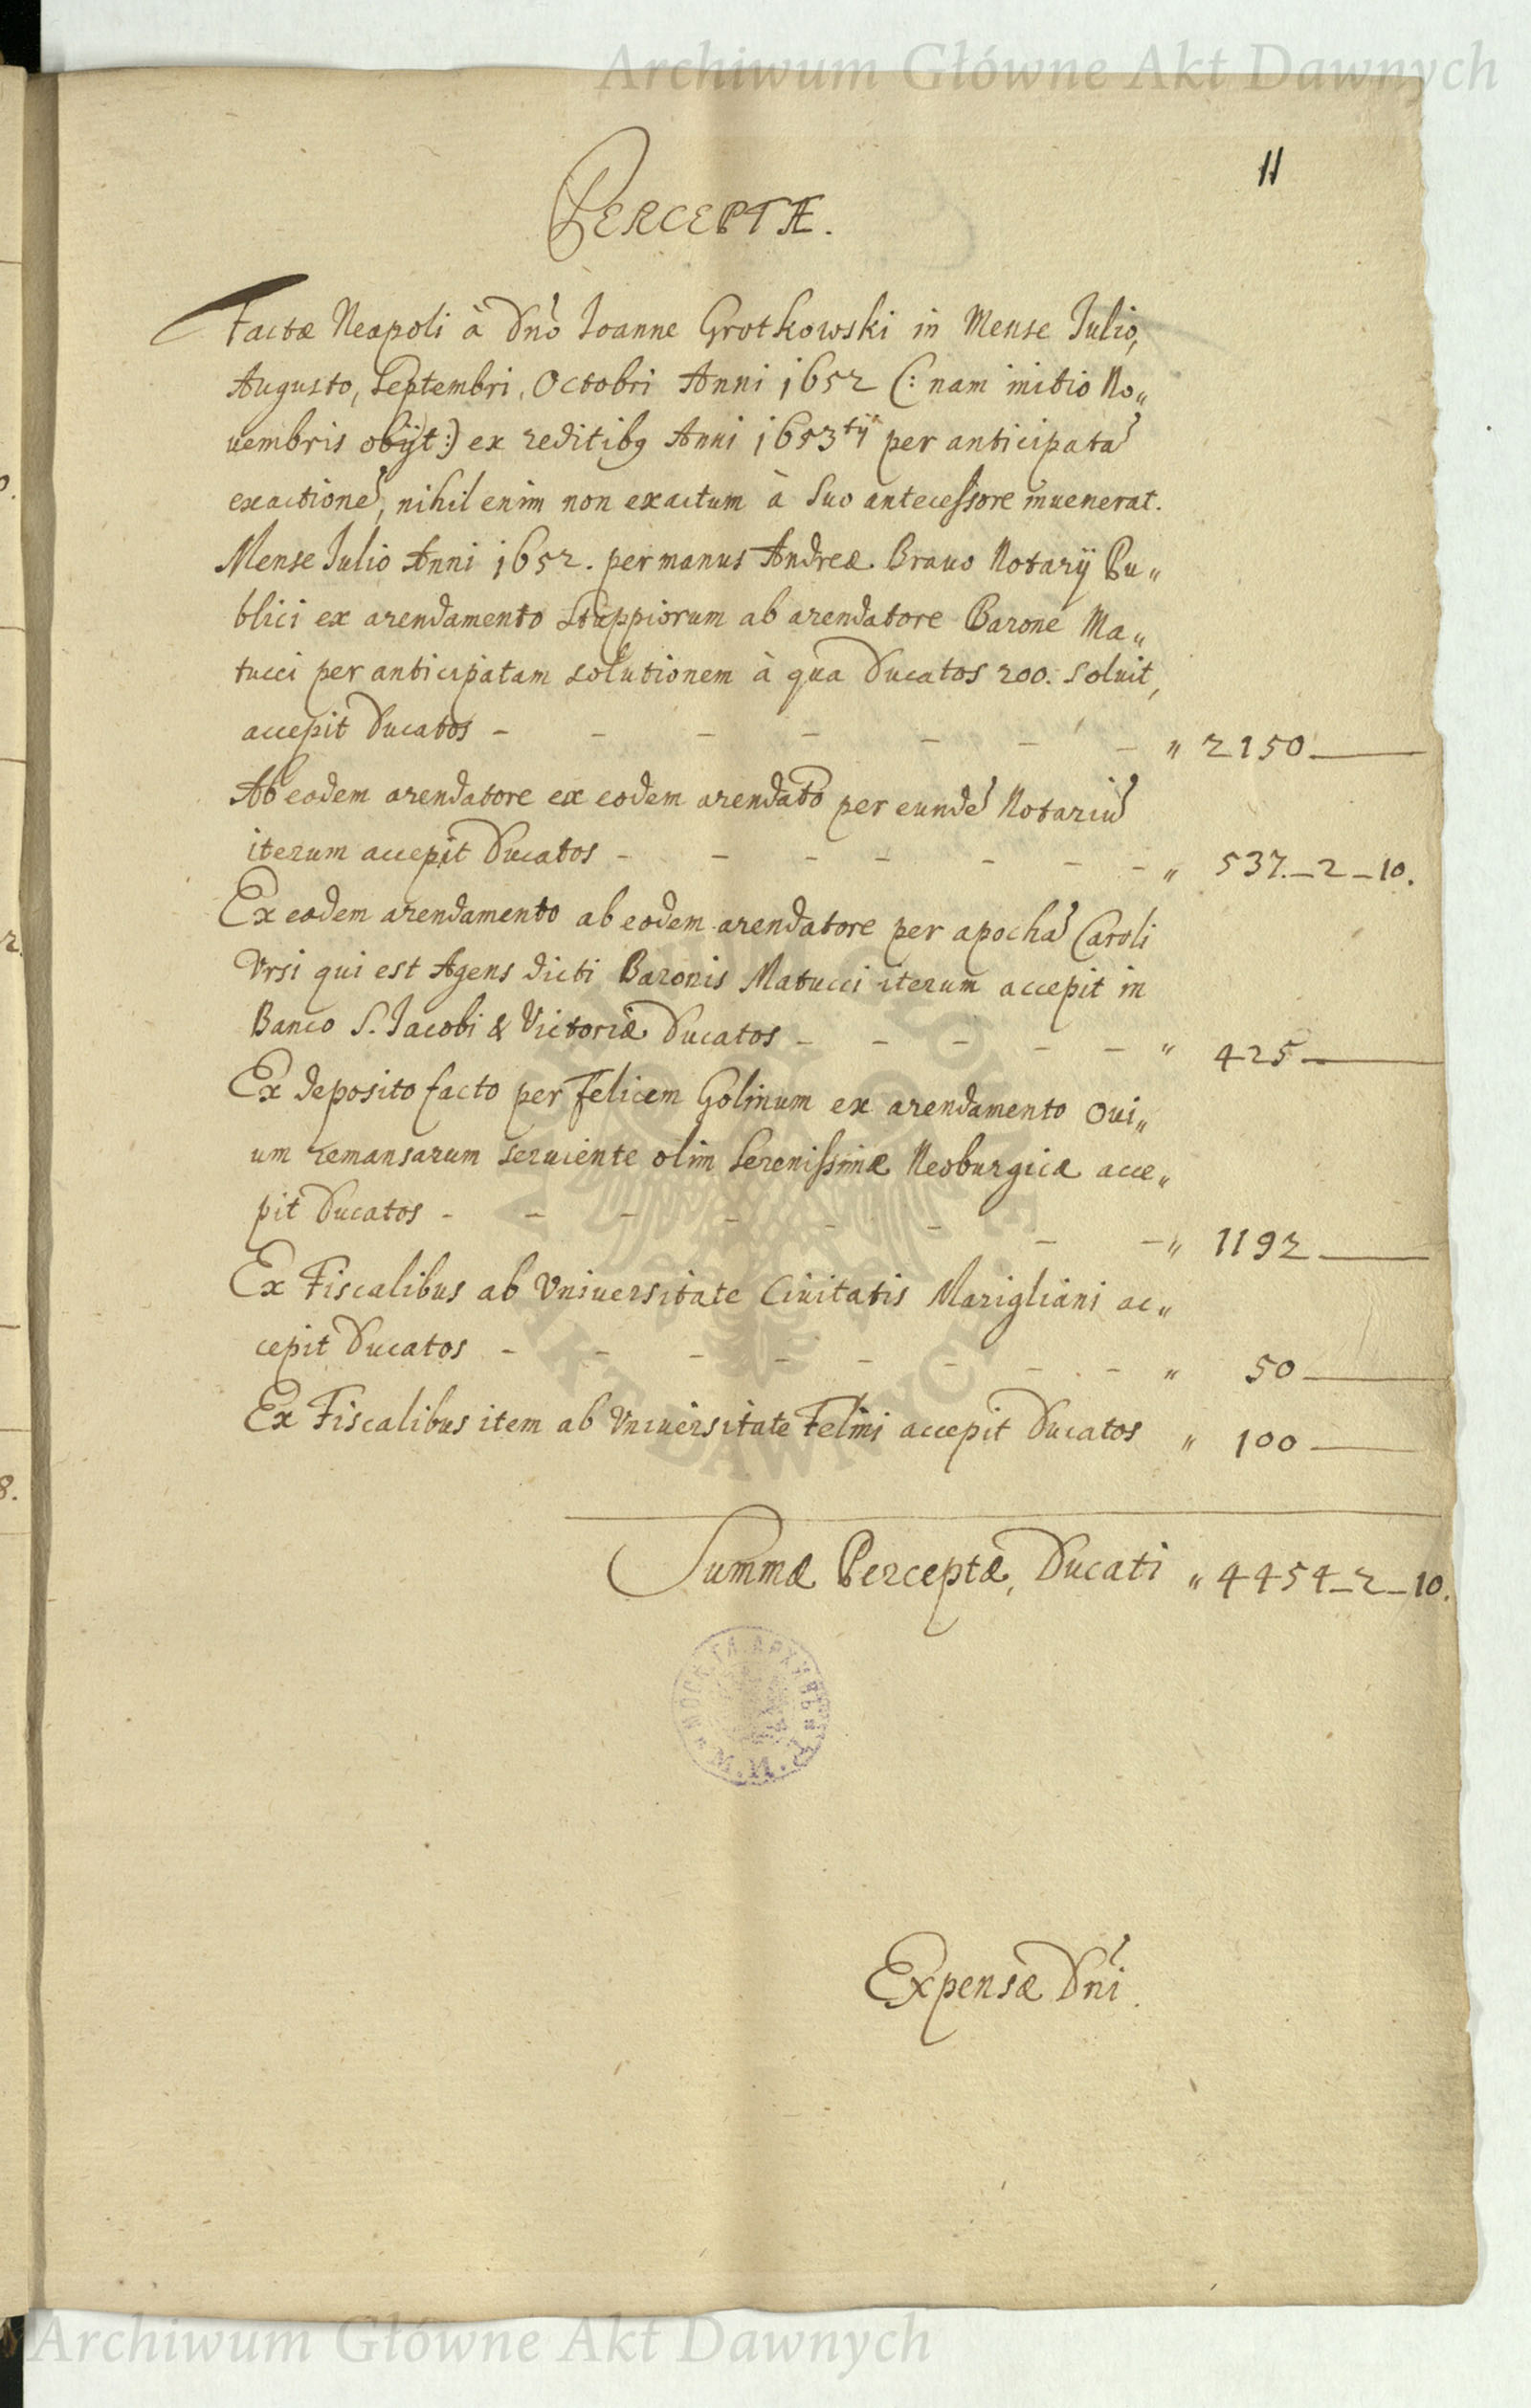 Archiwum Główne Akt Dawnych
11
PERCEPTÆ.
Factæ Neapoli à Dnõ Ioanne Grotkowski in Mense Iulio,
Augusto, Septembri, Octobri Anni 1652 (: nam initio No„
uembris obijt :) ex reditibꝫ Anni 1653tij per anticipatã
exactionẽ, nihil enim non exactum à suo antecessore inuenerat.
Mense Iulio Anni 1652. per manus Andreæ Brauo Notarij Pu„
blici ex arendamento Stuppiorum ab arendatore Barone Ma„
tucci per anticipatam solutionem à qua Ducatos 200. soluit,
accepit Ducatos - - - - - - - „ 2150
Ab eodem arendatore ex eodem arendãto per eundẽ Notariũ
iterum accepit Ducatos - - - - - - - „ 537._2_10.
Ex eodem arendamento ab eodem arendatore per apochã Caroli
Vrsi qui est Agens dicti Baronis Matucci iterum accepit in
Banco S. Iacobi & Victoriæ Ducatos - - - - - „ 425
Ex deposito facto per Felicem Golinum ex arendamento oui„
um remansarum seruiente olim Serenissimæ Neoburgicæ acce„
pit Ducatos - - - - - - - - „ 1192
Ex Fiscalibus ab Vniuersitate Ciuitatis Marigliani ac„
cepit Ducatos - - - - - - - - „ 50
Ex Fiscalibus item ab Vniuersitate Felini accepit Ducatos „ 100
Summæ Perceptæ, Ducati „ 4454_2_10.
Expensæ Dnĩ.
Archiwum Główne Akt Dawnych